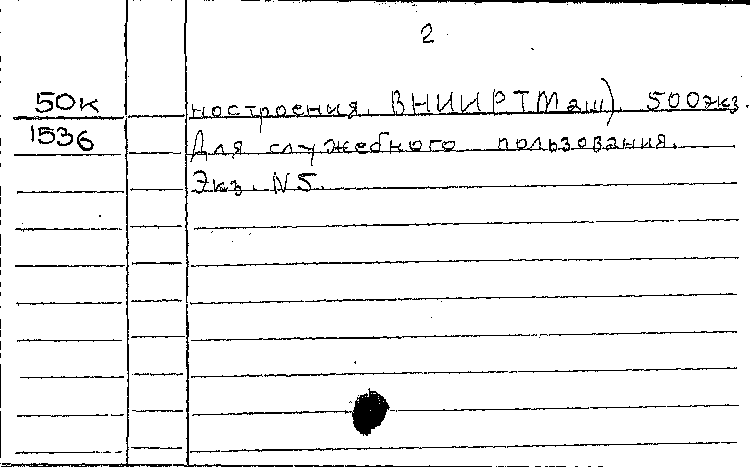 2
50к
ностроения. ВНИИРТМаш). 500экз.
1536
Для служебного пользования.
Экз. N5.